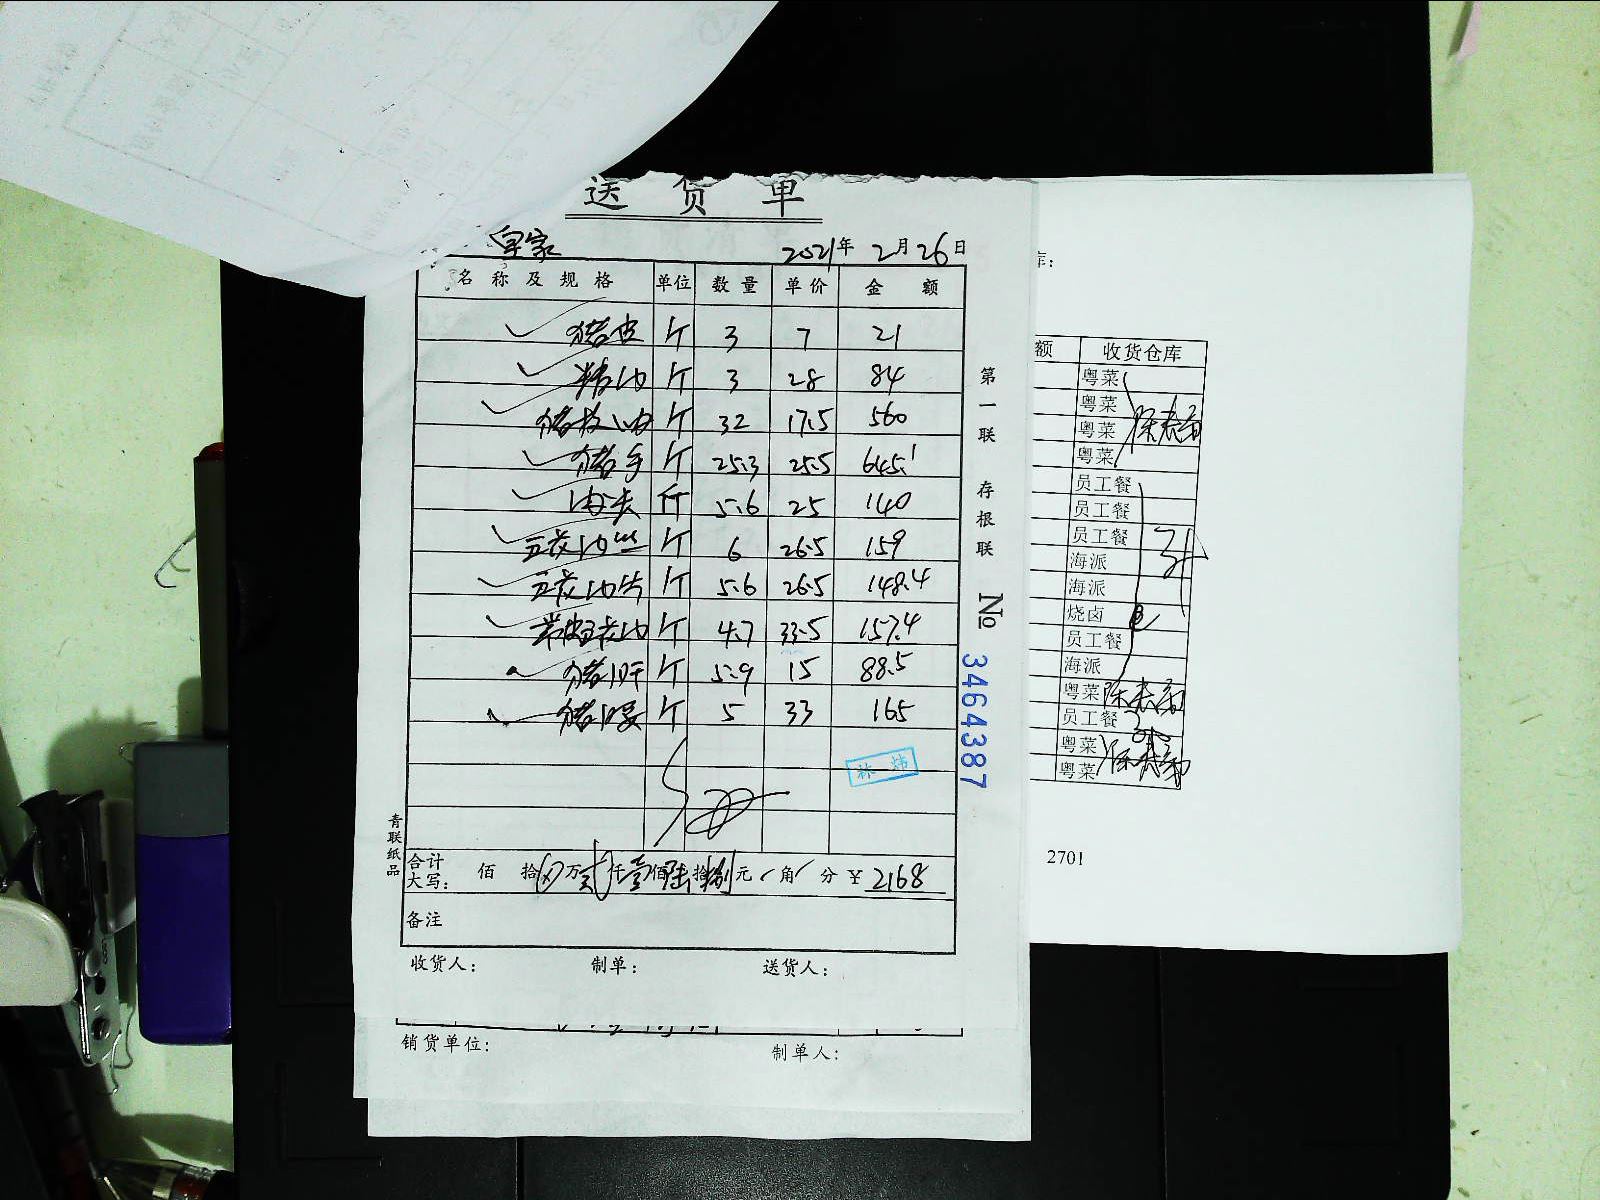 送货单
皇家 2021年2月26日
名称及规格 单位 数量 单价 金额
猪皮 斤 3 7 21
精肉 斤 3 28 84
猪板油 斤 32 17.5 560
猪手 斤 25.3 25.5 645.1
肉头 斤 5.6 25 140
五花肉丝 斤 6 26.5 159
五花肉片 斤 5.6 26.5 148.4
带皮五花肉 斤 4.7 33.5 157.4
猪肝 斤 5.9 15 88.5
猪腰 斤 5 33 165
林炜
合计
大写: 佰 拾 万贰仟壹佰陆拾捌元 角 分 ¥ 2168
备注
收货人: 制单: 送货人:
销货单位: 制单人:
第一联 存根联 № 3464387
青联纸品
库:
额 收货仓库
粤菜
粤菜
粤菜
粤菜
员工餐
员工餐
员工餐
海派
海派
烧卤
员工餐
海派
粤菜
员工餐
粤菜
粤菜
2701